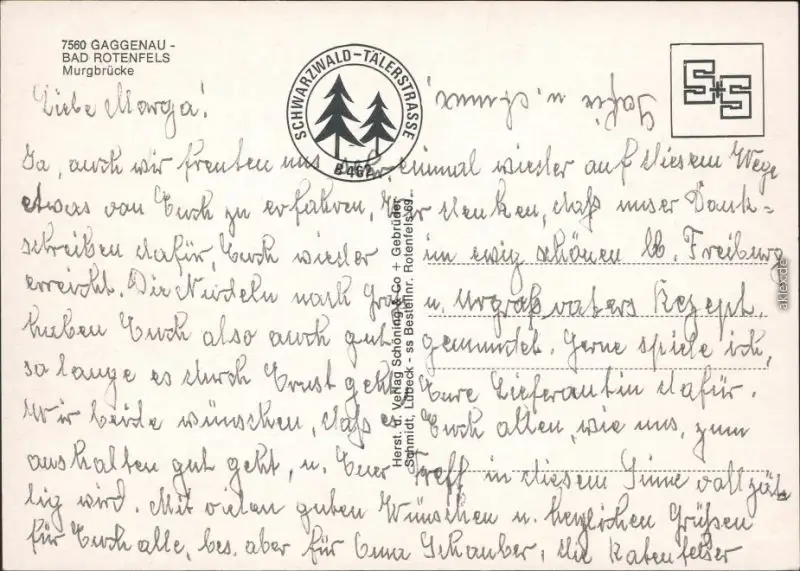 7560 GAGGENAU -
BAD ROTENFELS
Murgbrücke
SCHWARZWALD-TÄLERSTRASSE
B 462
S+S
Liebe Marga!
Ja, auch wir freuten uns sehr, einmal wieder auf diesem Wege
etwas von Euch zu erfahren, Wir denken, daß unser Dank=
schreiben dafür, Euch wieder im ewig schönen Freiburg
erreicht. Die Nudeln nach Groß u. Urgroßvaters Rezept.
haben Euch also auch gut gemundet. Gerne spiele ich,
so lange es durch Ernst geht, Eure Lieferantin dafür.
Wir beide wünschen, daß es Euch allen, wie uns, zum
aushalten gut geht, u. Euer Treff in diesem Sinne vollzäh
lig wird. Mit vielen guten Wünschen u. herzlichen Grüßen
für Euch alle, bes. aber für Schauber, die Rotenfelser
Herst. u. Verlag Schöning & Co + Gebrüder
Schmidt, Lübeck - ss Bestellnr. Rotenfels
akpool.de